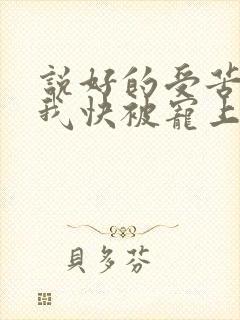 說好的受苦
我快被寵上
貝多芬